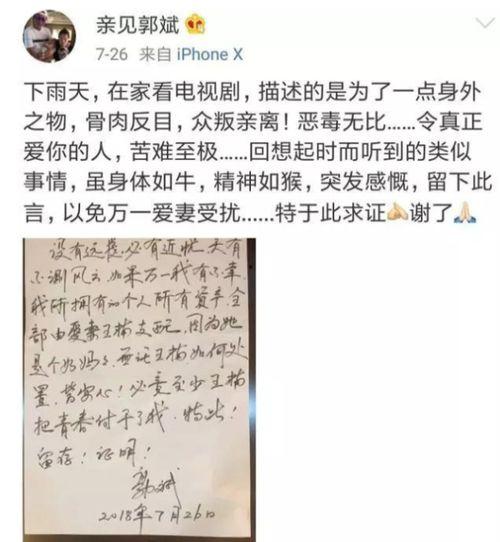 亲见郭斌
7-26 来自 iPhone X
下雨天，在家看电视剧，描述的是为了一点身外
之物，骨肉反目，众叛亲离！恶毒无比......令真正
爱你的人，苦难至极......回想起时而听到的类似
事情，虽身体如牛，精神如猴，突发感慨，留下此
言，以免万一爱妻受扰......特于此求证👏🏻谢了🙏🏻
没有远虑必有近忧 天有
不测风云 如果万一我有不幸
我所拥有的个人所有资产全
部由爱妻王楠支配，因为她
是个好妈妈 无论王楠如何处
置，皆安心！必竟至少王楠
把青春付于了我．特此！
留存！证明！
郭斌
2018年7月26日